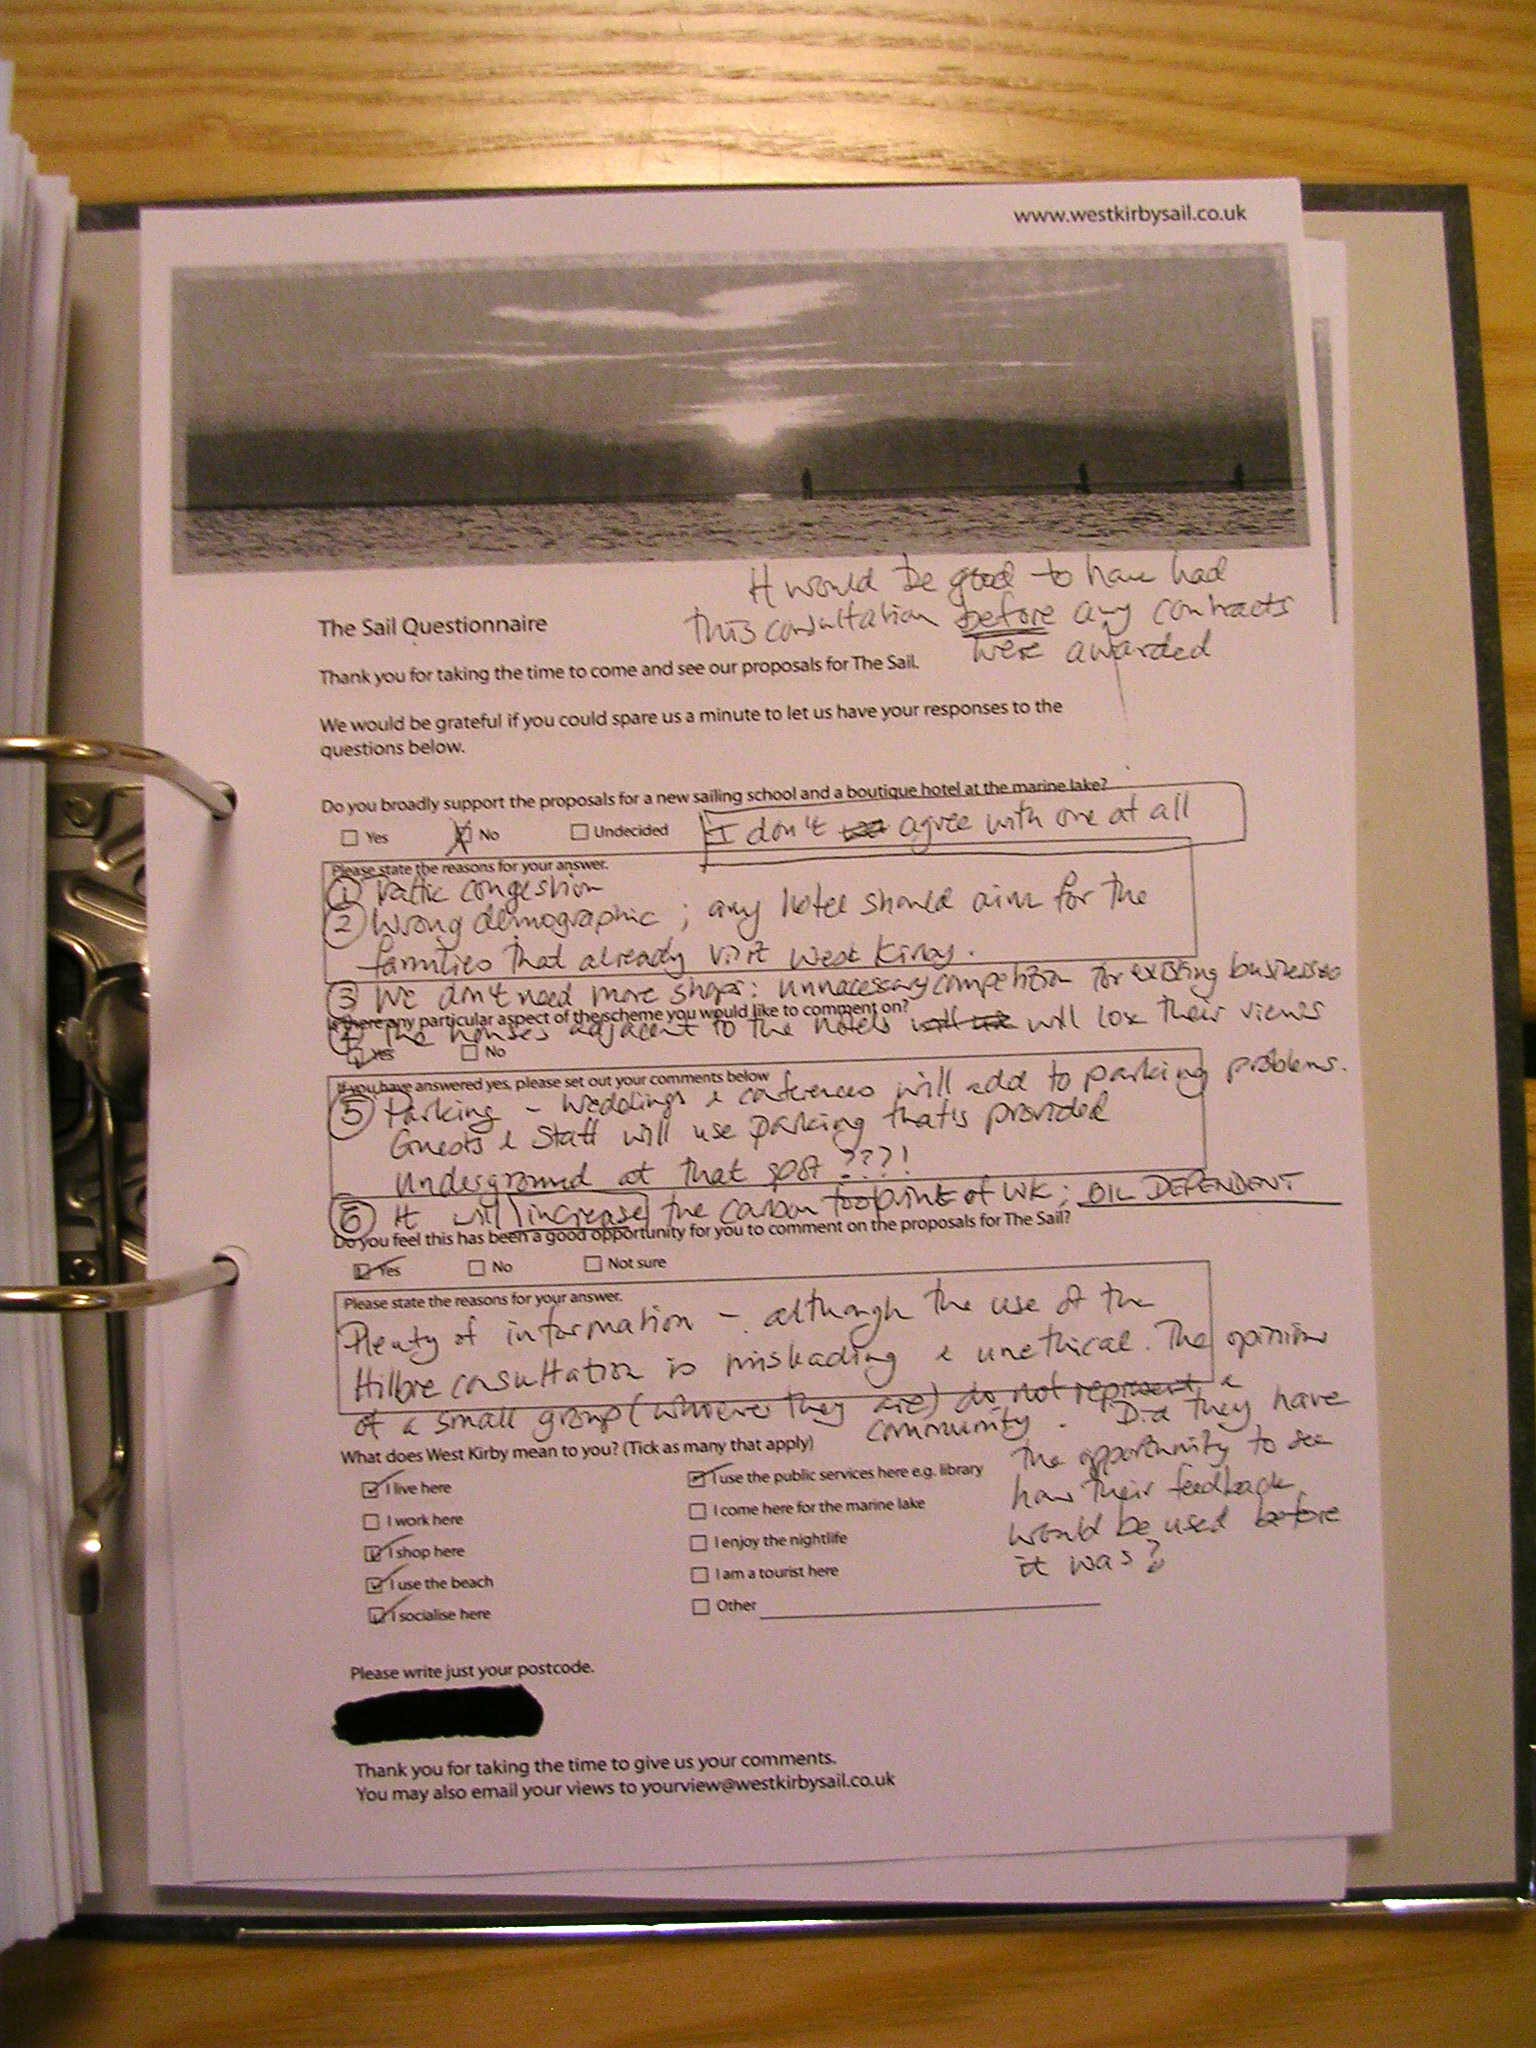 www.westkirbysail.co.uk
It would be good to have had
this consultation before any contracts
were awarded
The Sail Questionnaire
Thank you for taking the time to come and see our proposals for The Sail.
We would be grateful if you could spare us a minute to let us have your responses to the
questions below.
Do you broadly support the proposals for a new sailing school and a boutique hotel at the marine lake?
Yes No Undecided I don't agree with one at all
Please state the reasons for your answer.
① traffic congestion
② Wrong demographic; any hotel should aim for the
families that already visit West Kirby.
③ We don't need more shops: unnecessary competition for existing businesses
Is there any particular aspect of the scheme you would like to comment on?
④ The houses adjacent to the hotels will lose their views
Yes No
If you have answered yes, please set out your comments below
⑤ Parking - Weddings & conferences will add to parking problems.
Guests & staff will use parking that's provided
underground at that spot ???!
⑥ It will increase the carbon footprint of WK; OIL DEPENDENT
Do you feel this has been a good opportunity for you to comment on the proposals for The Sail?
Yes No Not sure
Please state the reasons for your answer.
Plenty of information - although the use of the
Hilbre consultation is misleading & unethical. The opinions
of a small group (whoever they are) do not represent a
community. Did they have
the opportunity to see
how their feedback
would be used before
it was?
What does West Kirby mean to you? (Tick as many that apply)
I live here
I work here
I shop here
I use the beach
I socialise here
I use the public services here e.g. library
I come here for the marine lake
I enjoy the nightlife
I am a tourist here
Other
Please write just your postcode.
Thank you for taking the time to give us your comments.
You may also email your views to yourview@westkirbysail.co.uk